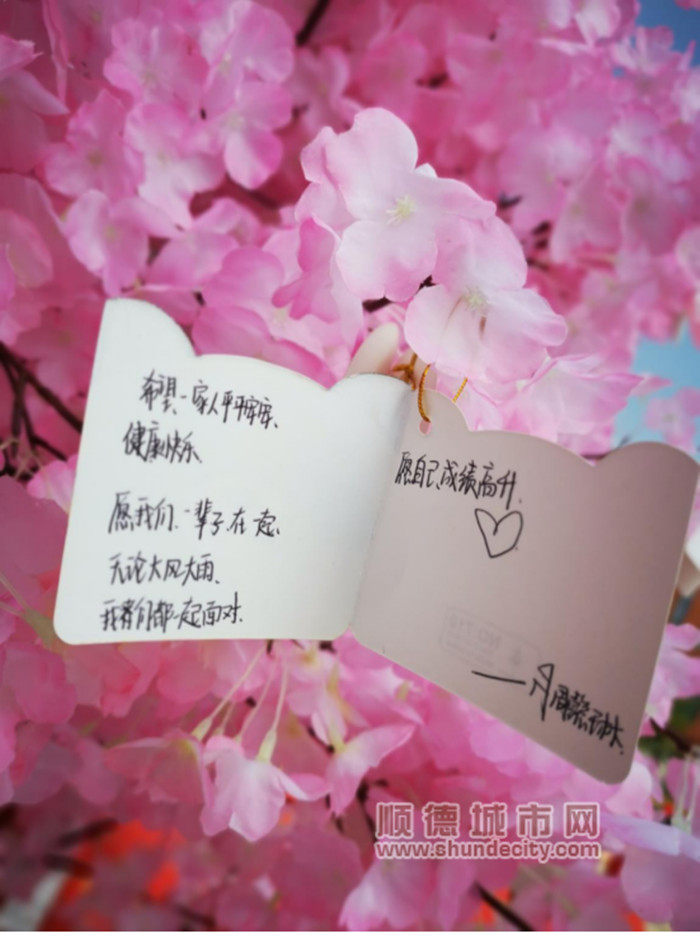 希望一家人平平安安、
健康快乐
愿我们一辈子在一起、
无论大风大雨、
我们都一起面对.
愿自己成绩高升.
顺德城市网
www.shundecity.com